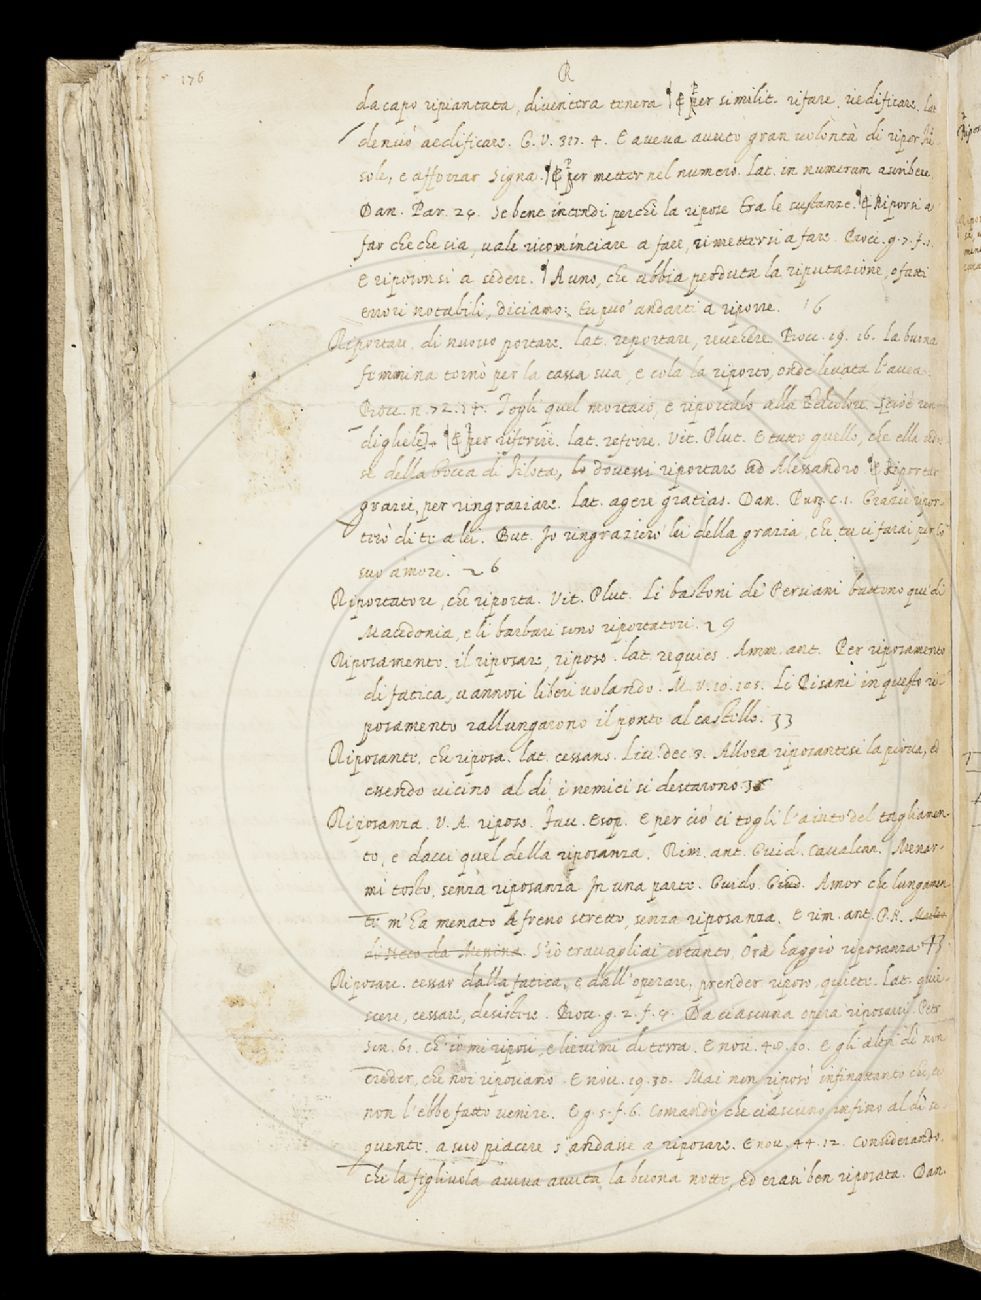 176
R
da capo ripiantata, diventera tenera ¶ E per similit. rifare, riedificare. lat
denuo aedificare. G. V. 317. 4. E aveva avuto gran volontà di ripor Fie
sole, e afforzar Signa. ¶ E per metter nel numero. Lat. in numerum ascribere
Dan. Par. 29. Se bene intendi perchè la ripose Tra le sustanze. ¶ E Riporsi a
far che che sia, vale ricominciare a fare, rimettersi a fare. Bocc. g. 7. f. 1.
E riposonsi a sedere. ¶ A uno, che abbia perduta la riputazione, o fatti
errori notabili, diciamo: tu puo' andarti a riporre. 16
Riportare, di nuovo portare. Lat. reportare, revehere. Bocc. 19. 16. La buona
femmina tornò per la cassa sua, e colà la riportò, onde levata l'avea.
Bocc. n. 72. 14. Togli quel mortaio, e riportalo alla Belcolore
digliele ¶ E per riferire. Lat. referre. Vit. Plut. E tutto quello, che ella udis
se della bocca di Filota, lo dovessi riportare ad Alessandro ¶ E Riportar
grazie, per ringraziare. Lat. agere gratias. Dan. Purg. c. 1. Grazie ripor-
terò di te a lei. But. Io ringrazierò lei della grazia, che tu ci farai per lo
suo amore. 26
Riportatore, che riporta. Vit. Plut. Li bastoni de' Persiani battono que' di
Macedonia, e li barbari sono riportatori. 29
Riposamento. il riposare, riposo. lat. requies. Amm. ant. Per riposamento
di fatica, vannosi liberi volando. M. V. 10. 101. Li Pisani in questo ri-
posamento rallungarono il ponto al castello. 33
Riposante. che riposa. lat. cessans. Liv. dec. 3. Allora riposantesi la piova, ed
essendo vicino al dì, i nemici si destarono.
Riposanza. V. A. riposo. Fav. Esop. E per ciò ci togli l'aiuto del tagliamen-
to, e dacci quel della riposanza. Rim. ant. Guid. Cavalcan. Menar-
mi tosto, senza riposanza In una parte. Guido Giud. Amor che lungamen
te m'ha menato A freno stretto, senza riposanza. E rim. ant. P. N.
S'io travagliai cotanto, Ora haggio riposanza. 43
Riposare. cessar dalla fatica, e dall'operare, prender riposo, quiete. Lat. quie-
scere, cessare, desistere. Bocc. g. 2. f. 4. Da ciascuna opera riposarci. Petr
Son. 61. ch'io mi riposi, e lievimi di terra. E nov. 48. 10. E gli altri dì non
creder, che noi riposiamo. E nov. 19. 30. Mai non riposò infinattanto che, co
non l'ebbe fatto venire. E g. 5. f. 6. Comandò che ciascuno infino al dì se-
guente a suo piacere s'andasse a riposare. E nov. 44. 12. Considerando,
che la figliuola aveva avuta la buona notte, ed erasi ben riposata. Dan.